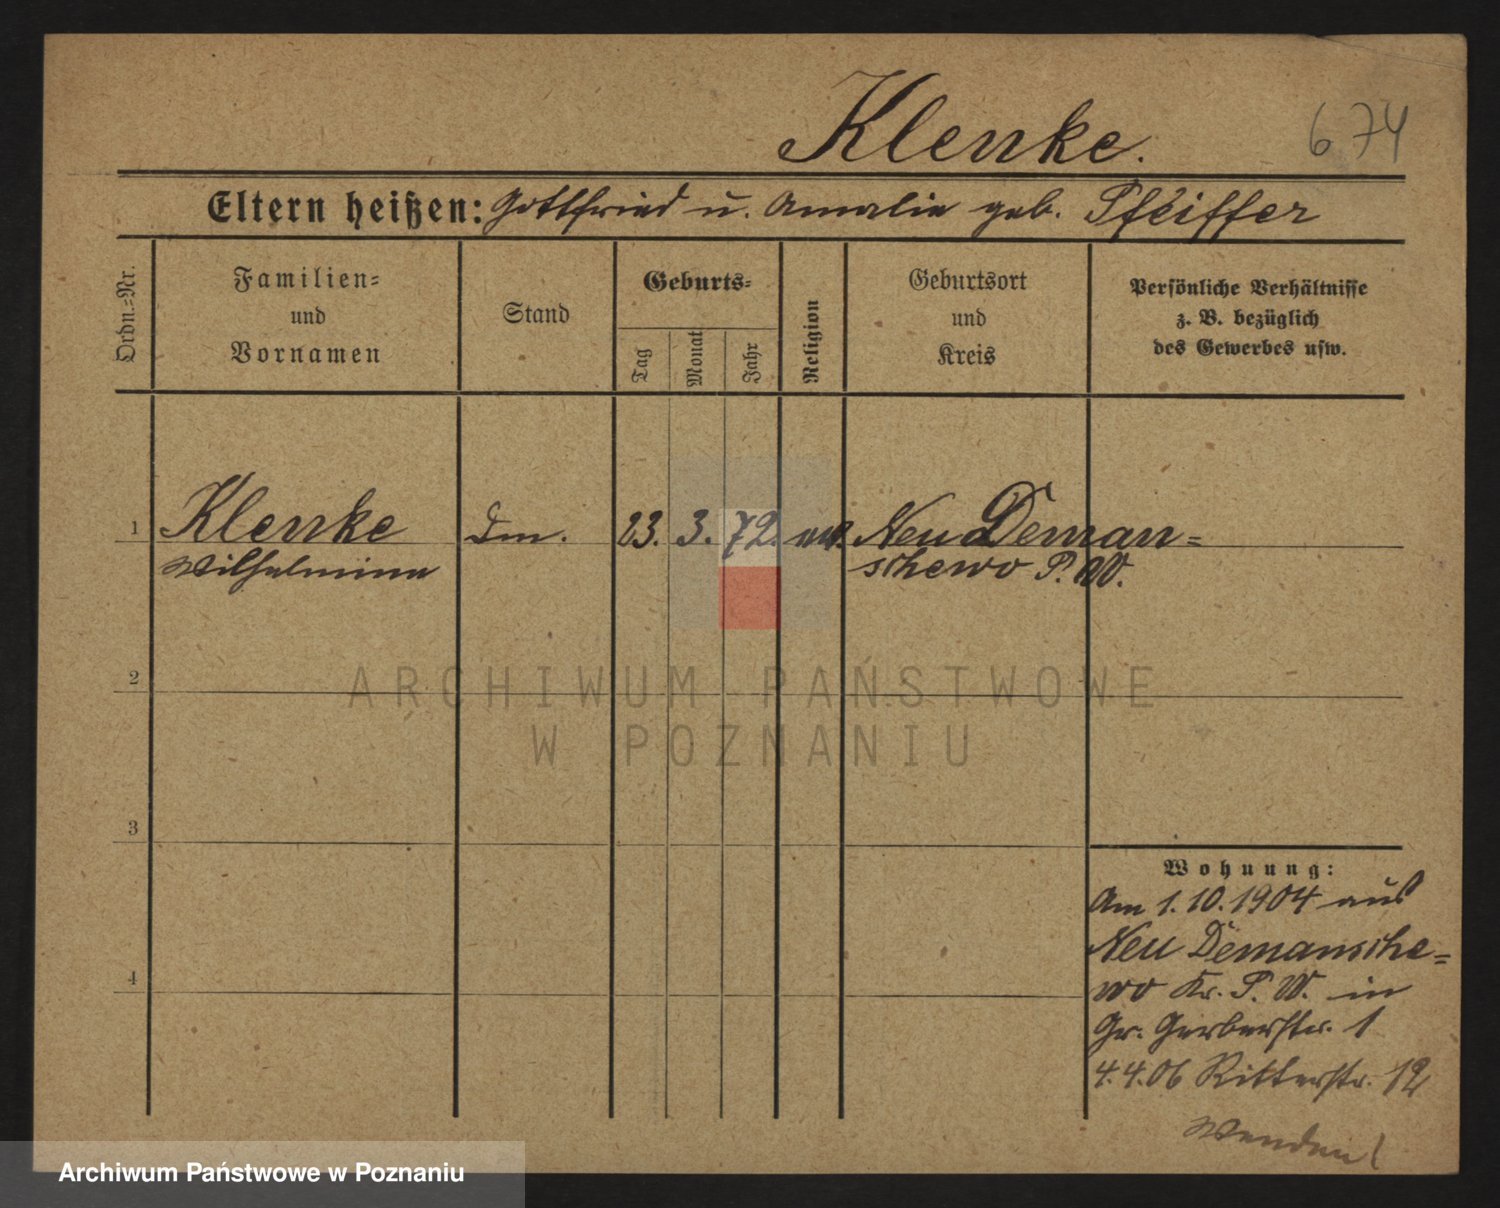 Klenke.
674
Eltern heißen: Gottfried u. Amalie geb. Pfeiffer
Ordn.=Nr.
Familien=
und
Vornamen
Stand
Geburts=
Tag
Monat
Jahr
Religion
Geburtsort
und
Kreis
Persönliche Verhältnisse
z. B. bezüglich
des Gewerbes usw.
1 Klenke 23. 3. 72. Neu Deman=
Wilhelmine schewo P. W.
2
ARCHIWUM PAŃSTWOWE
W POZNANIU
3
Wohnung:
Am 1.10.1904 aus
Neu Demansche=
wo Kr. P. W. in
Gr. Gerberstr. 1
4
4.4.06 Ritterstr. 12
Wenden!
Archiwum Państwowe w Poznaniu